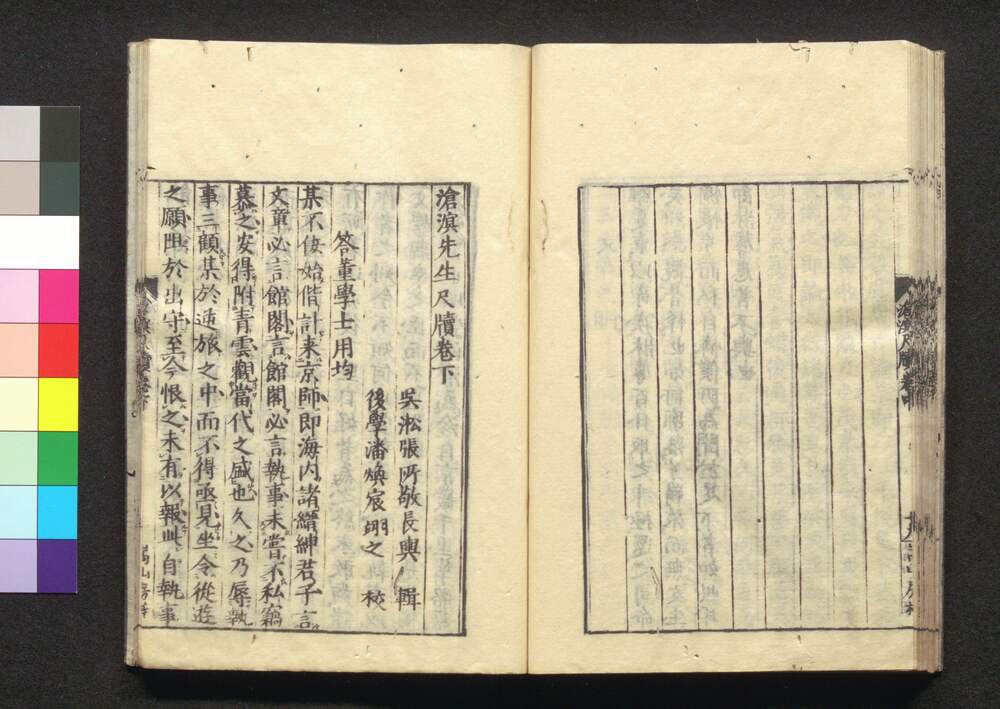 滄溟先生尺牘卷下
吳淞張所敬長輿輯
後學潘煥宸翊之校
答董學士用均
某不佞始偕計来京師即海内諸縉紳君子言
文章必言館閣言館閣必言執事未嘗不私竊
慕之安得附青雲觀當代之盛也久之乃辱執
事三顧某於逆旅之中而不得亟見坐令從遊
之願阻於出守至今恨之未有以報此自執事